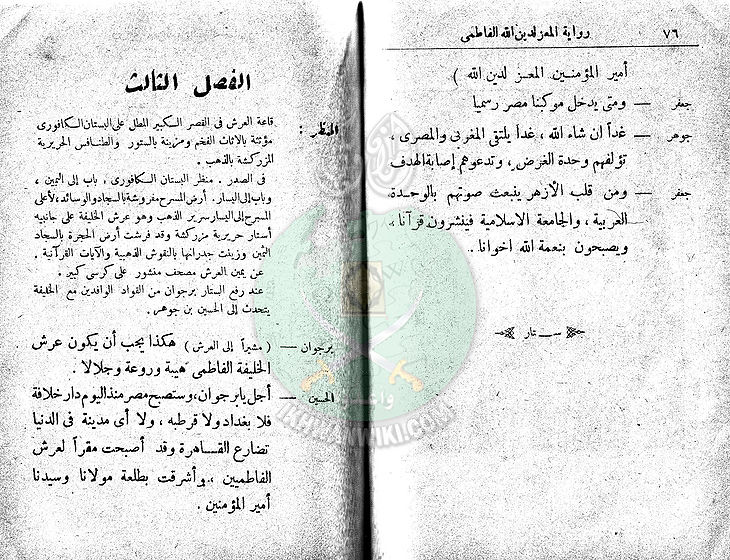 ٧٦ رواية المعز لدين الله الفاطمى
أمير المؤمنـين المعـز لدين الله )
جعفر — ومتى يدخل موكبنا مصر رسميا
جوهر — غداً ان شاء الله ، غداً يلتقى المغربى والمصرى ،
تؤلفهم وحدة الغرض ، وتدعوهم إصابة الهدف
جعفر — ومن قلب الأزهر ينبعث صوتهم بالوحدة
العربية ، والجامعة الاسلامية فينشرون قرآنا ،
ويصبحون بنعمة الله اخوانا .
ســتار
الفصل الثالث
المنظر : قاعة العرش فى القصر الكبير المطل على البستان الكافورى
مؤثثة بالاثاث الفخم ومزينة بالستور والطنافس الحريرية
المزركشة بالذهب .
فى الصدر . منظر البستان الكافورى ، باب إلى اليمين ،
وباب إلى اليسار . أرض المسرح مفروشة بالسجاد والوسائد ، لأعلى
المسرح إلى اليسار سرير الذهب وهو عرش الخليفة على جانبيه
أستار حريرية مزركشة وقد فرشت أرض الحجرة بالسجاد
الثمين وزينت جدرانها بالنقوش الذهبية والآيات القرآنية .
عن يمين العرش مصحف منشور على كرسى كبير .
عند رفع الستار برجوان من القواد الوافدين مع الخليفة
يتحدث إلى الحسين بن جوهر .
برجوان — ( مشيراً إلى العرش ) هكذا يجب أن يكون عرش
الخليفة الفاطمى هيبة وروعة وجلالا .
الحسين — أجل يا برجوان ، وستصبح مصر منذ اليوم دار خلافة
فلا بغداد ولا قرطبه ، ولا أى مدينة فى الدنيا
تضارع القـاهرة وقد أصبحت مقراً لعرش
الفاطميين ، وأشرقت بطلعة مولانا وسيدنا
أمير المؤمنين .
IKHWANWIKI.COM